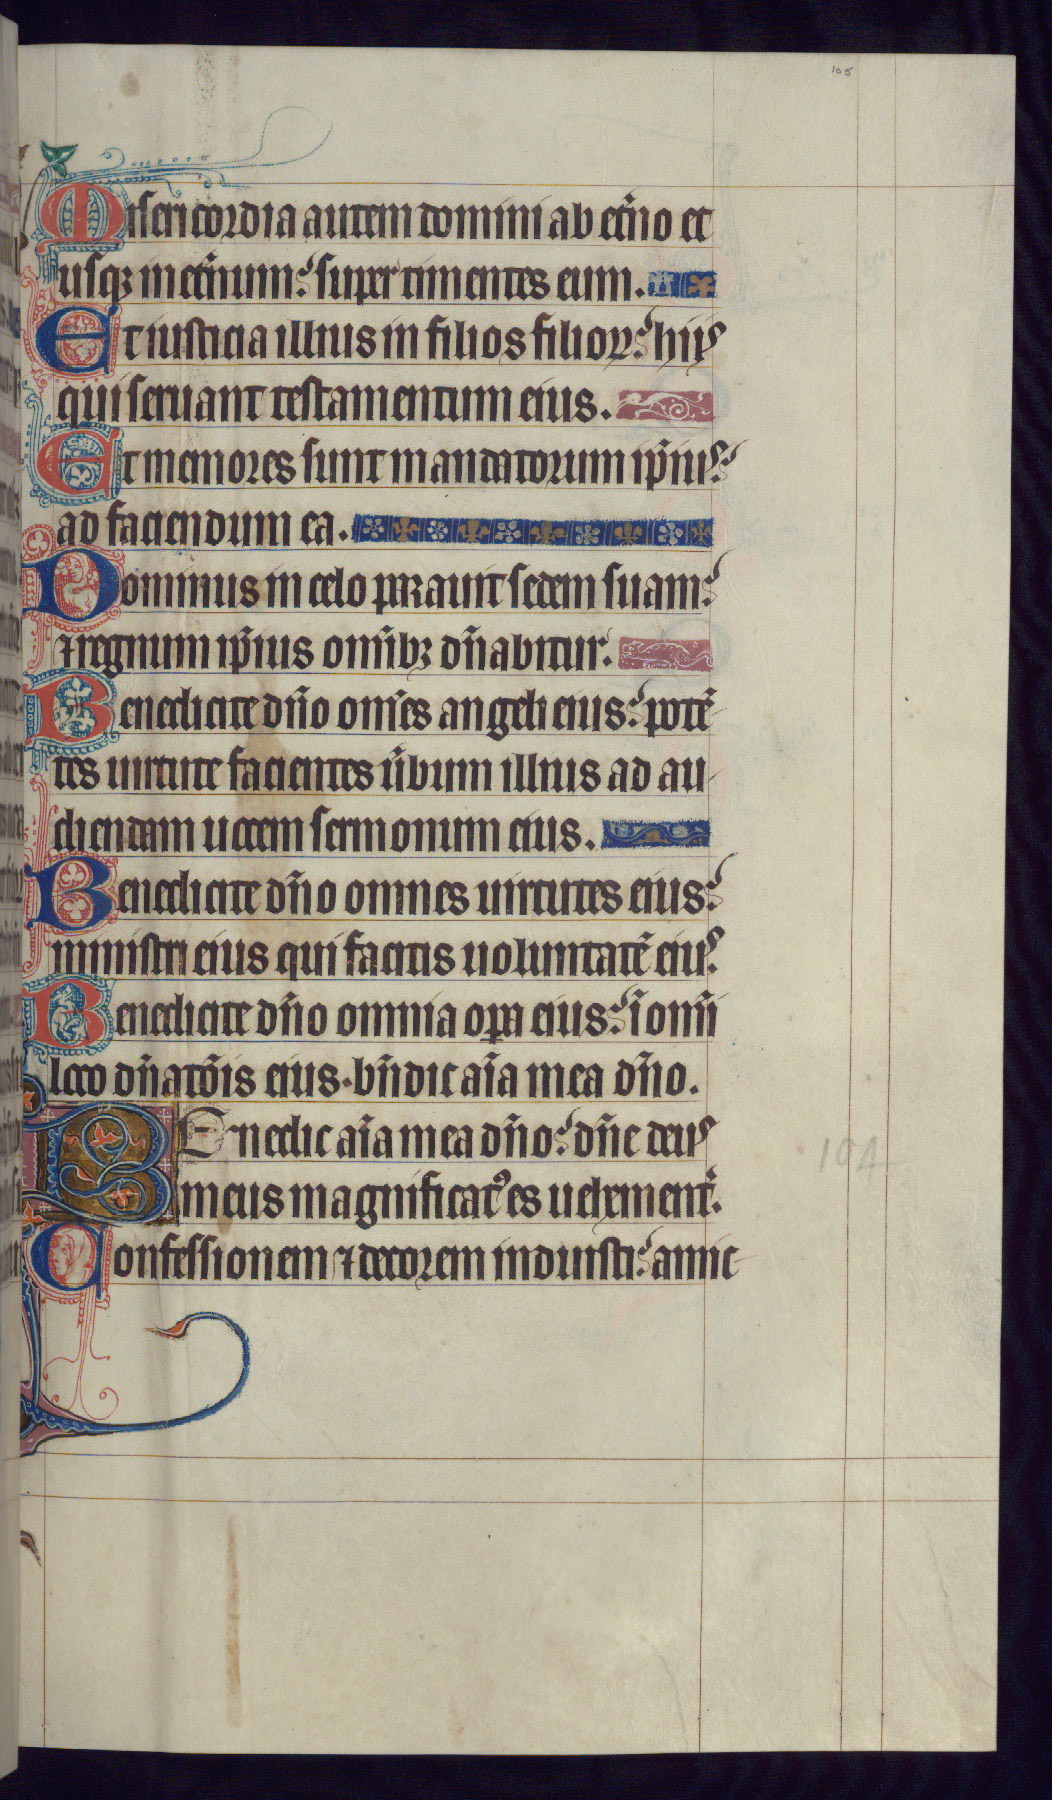 105
Misericordia autem domini ab et̄no et
usq; in et̄num: super timentes eum.
Et iusticia illius in filios filioꝝ: hiis
qui seruant testamentum eius.
Et memores sunt mandatorum ip̄iꝰ:
ad faciendum ea.
Dominus in celo parauit sedem suam:
⁊ regnum ip̄ius om̄ibꝫ dn̄abitur.
Benedicite dn̄o om̄es angeli eius: potē
tes uirtute facientes ūbum illius ad au
diendam uocem sermonum eius.
Benedicite dn̄o omnes uirtutes eius:
ministri eius qui facitis uoluntatē eiꝰ.
Benedicite dn̄o omnia oꝑa eius: ī om̄i
loco dn̄atōis eius. bn̄dic aīa mea dn̄o.
BEnedic aīa mea dn̄o: dn̄e deus
meus magnificatꝰ es uehement̄.
104
Confessionem ⁊ decorem induisti: amic